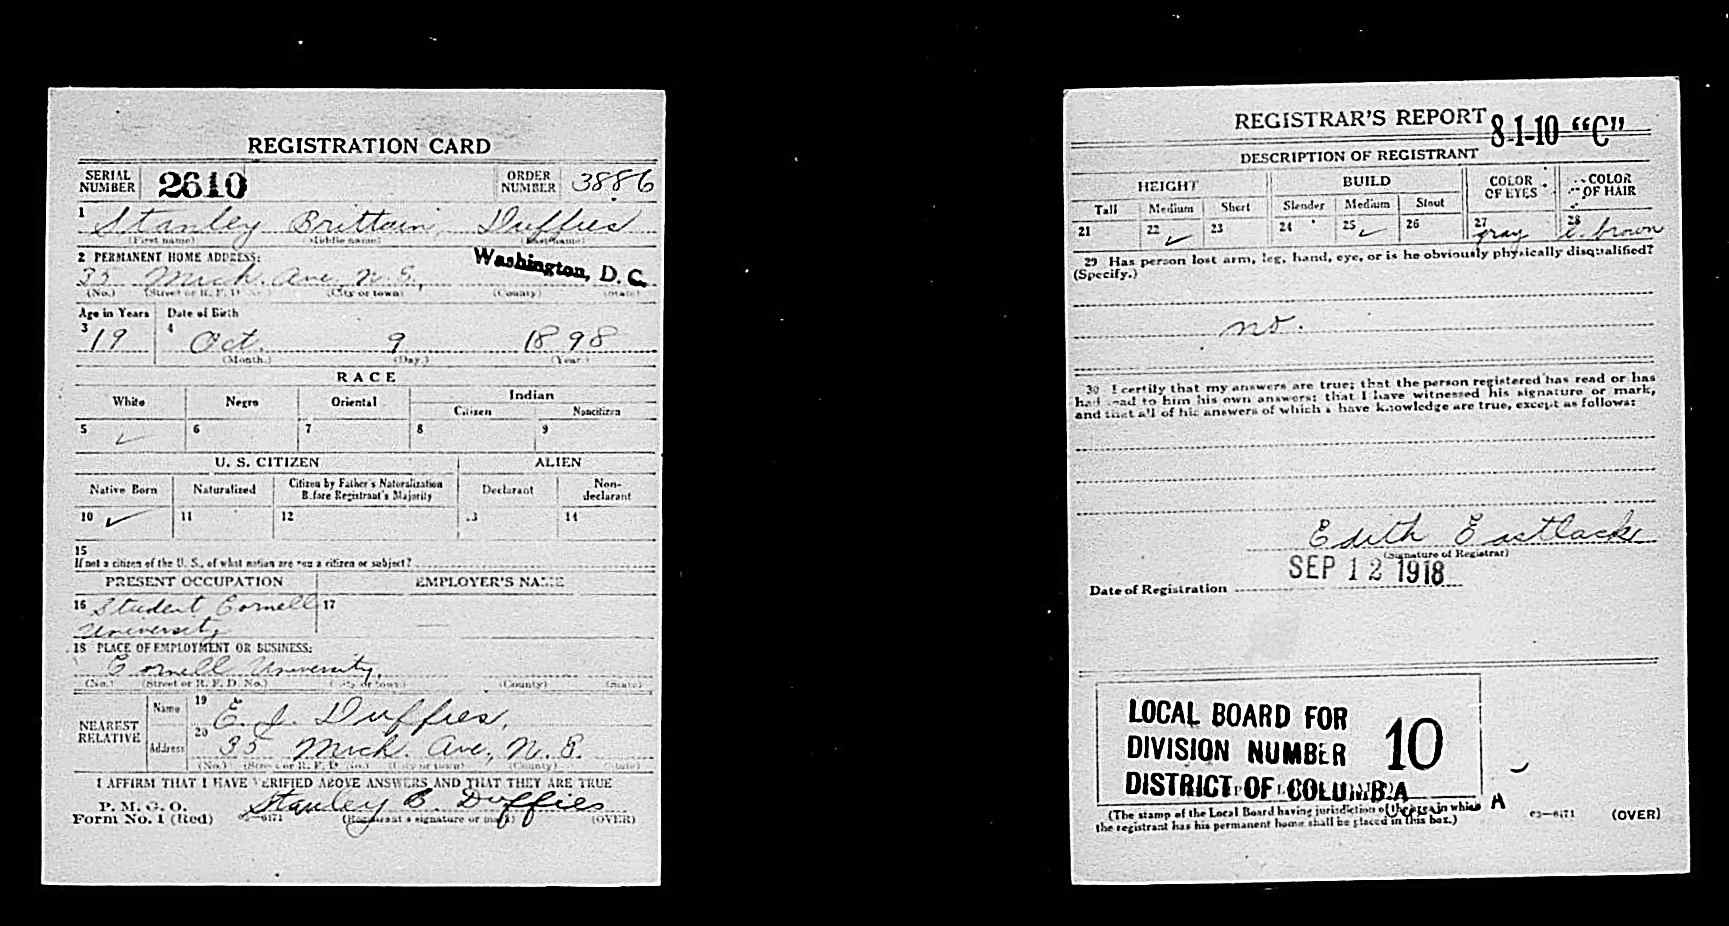 REGISTRATION CARD
SERIAL NUMBER 2610 ORDER NUMBER 3886
1 Stanley Brittain Duffies
(First name) (Middle name) (Last name)
2 PERMANENT HOME ADDRESS: Washington, D. C.
35 Mich. Ave, N. E.,
(No.) (Street or R. F. D. No.) (City or town) (County) (State)
Age in Years Date of Birth
3 19 4 Oct. 9 1898
(Month.) (Day.) (Year.)
RACE
White Negro Oriental Indian
Citizen Noncitizen
5 ✓ 6 7 8 9
U. S. CITIZEN ALIEN
Native Born Naturalized Citizen by Father's Naturalization Before Registrant's Majority Declarant Non-declarant
10 ✓ 11 12 13 14
15
If not a citizen of the U. S., of what nation are you a citizen or subject?
PRESENT OCCUPATION EMPLOYER'S NAME
16 Student Cornell 17
University
18 PLACE OF EMPLOYMENT OR BUSINESS:
Cornell University,
(No.) (Street or R. F. D. No.) (City or town) (County) (State)
NEAREST RELATIVE Name 19 E. J. Duffies,
Address 20 35 Mich. Ave, N. E.
(No.) (Street or R. F. D. No.) (City or town) (County) (State)
I AFFIRM THAT I HAVE VERIFIED ABOVE ANSWERS AND THAT THEY ARE TRUE
P. M. G. O. Stanley B Duffies
Form No. 1 (Red) 3—6171 (Registrant's signature or mark) (OVER)
REGISTRAR'S REPORT 8-1-10 "C"
DESCRIPTION OF REGISTRANT
HEIGHT BUILD COLOR OF EYES COLOR OF HAIR
Tall Medium Short Slender Medium Stout
21 22 ✓ 23 24 25 ✓ 26 27 gray 28 l. brown
29 Has person lost arm, leg, hand, eye, or is he obviously physically disqualified?
(Specify.)
no.
30 I certify that my answers are true; that the person registered has read or has
had read to him his own answers; that I have witnessed his signature or mark,
and that all of his answers of which I have knowledge are true, except as follows:
Edith Eastlack
(Signature of Registrar)
Date of Registration SEP 12 1918
LOCAL BOARD FOR
DIVISION NUMBER 10
DISTRICT OF COLUMBIA
(The stamp of the Local Board having jurisdiction of the area in which
the registrant has his permanent home shall be placed in this box.)
A
03—6171 (OVER)